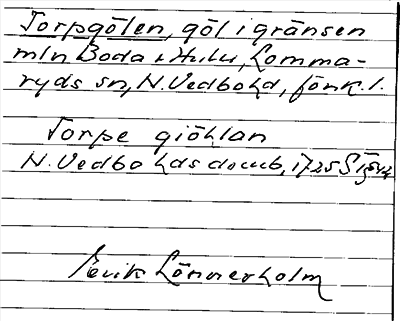 Torpgölen, göl i gränsen
mln Boda o Hulu, Lomma-
ryds sn, N. Vedbo hd, Jönk. l.
Torpe giöhlan
N. Vedbo hds domb, 1725
Erik Lönnerholm